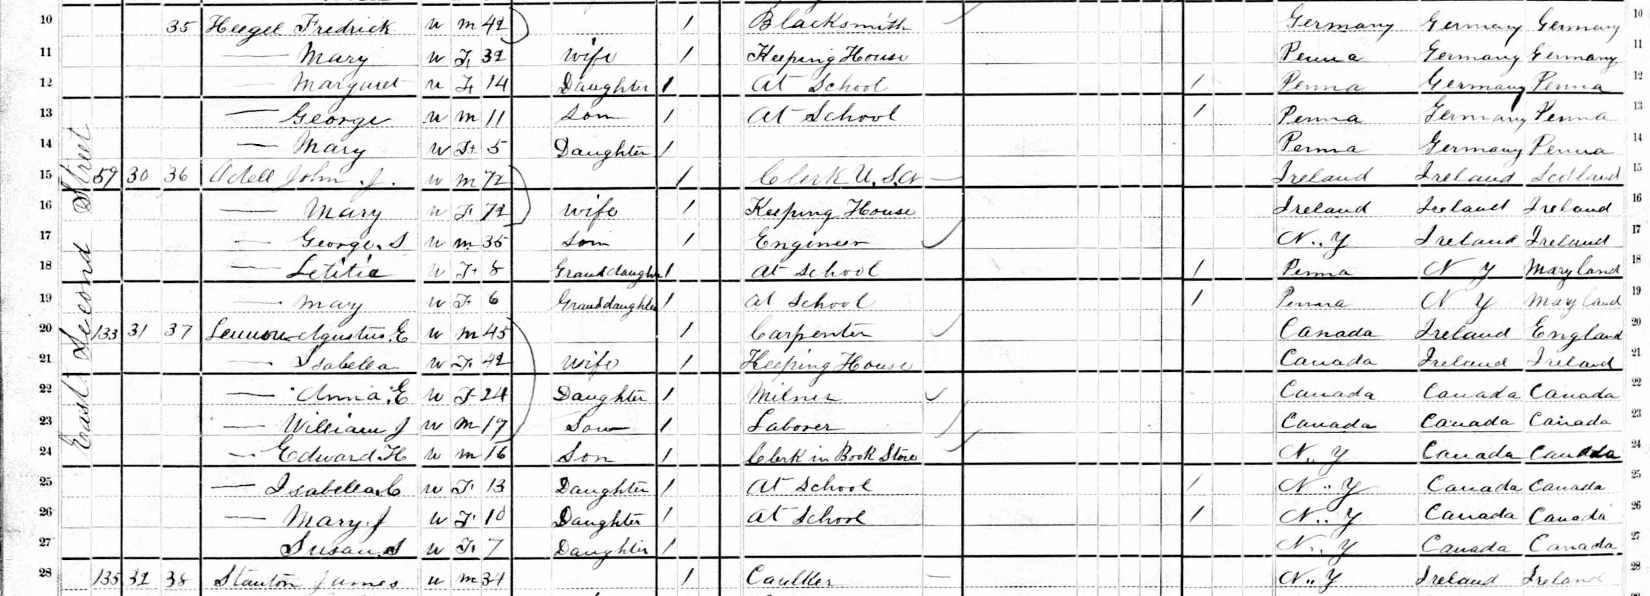 10 35 Heegel Fredrick W M 42 / Blacksmith Germany Germany Germany 10
11 — Mary W F 32 wife / Keeping House Penna Germany Germany 11
12 — Margaret W F 14 Daughter / At School / Penna Germany Penna 12
13 — George W M 11 Son / At School / Penna Germany Penna 13
14 — Mary W F 5 Daughter / Penna Germany Penna 14
East Second Street
15 59 30 36 Odell John J. W M 72 / Clerk U.S.N — Ireland Ireland Scotland 15
16 — Mary W F 72 wife / Keeping House Ireland Ireland Ireland 16
17 — George S W M 35 Son / Engineer N.Y Ireland Ireland 17
18 — Letitia W F 8 Granddaughter / At School / Penna N Y Maryland 18
19 — Mary W F 6 Granddaughter / At School / Penna N Y Maryland 19
20 133 31 37 Agustus E W M 45 / Carpenter Canada Ireland England 20
21 — Isabella W F 42 wife / Keeping House Canada Ireland Ireland 21
22 — Anna E W F 24 Daughter / Milner Canada Canada Canada 22
23 — William J W M 19 Son / Laborer Canada Canada Canada 23
24 — Edward H W M 16 Son / Clerk in Book Store N.Y Canada Canada 24
25 — Isabella C W F 13 Daughter / At School / N.Y Canada Canada 25
26 — Mary J W F 10 Daughter / At School / N.Y Canada Canada 26
27 Susan S W F 7 Daughter / N.Y Canada Canada 27
28 135 32 38 Stanton James W M 31 / Caulker — N.Y Ireland Ireland 28